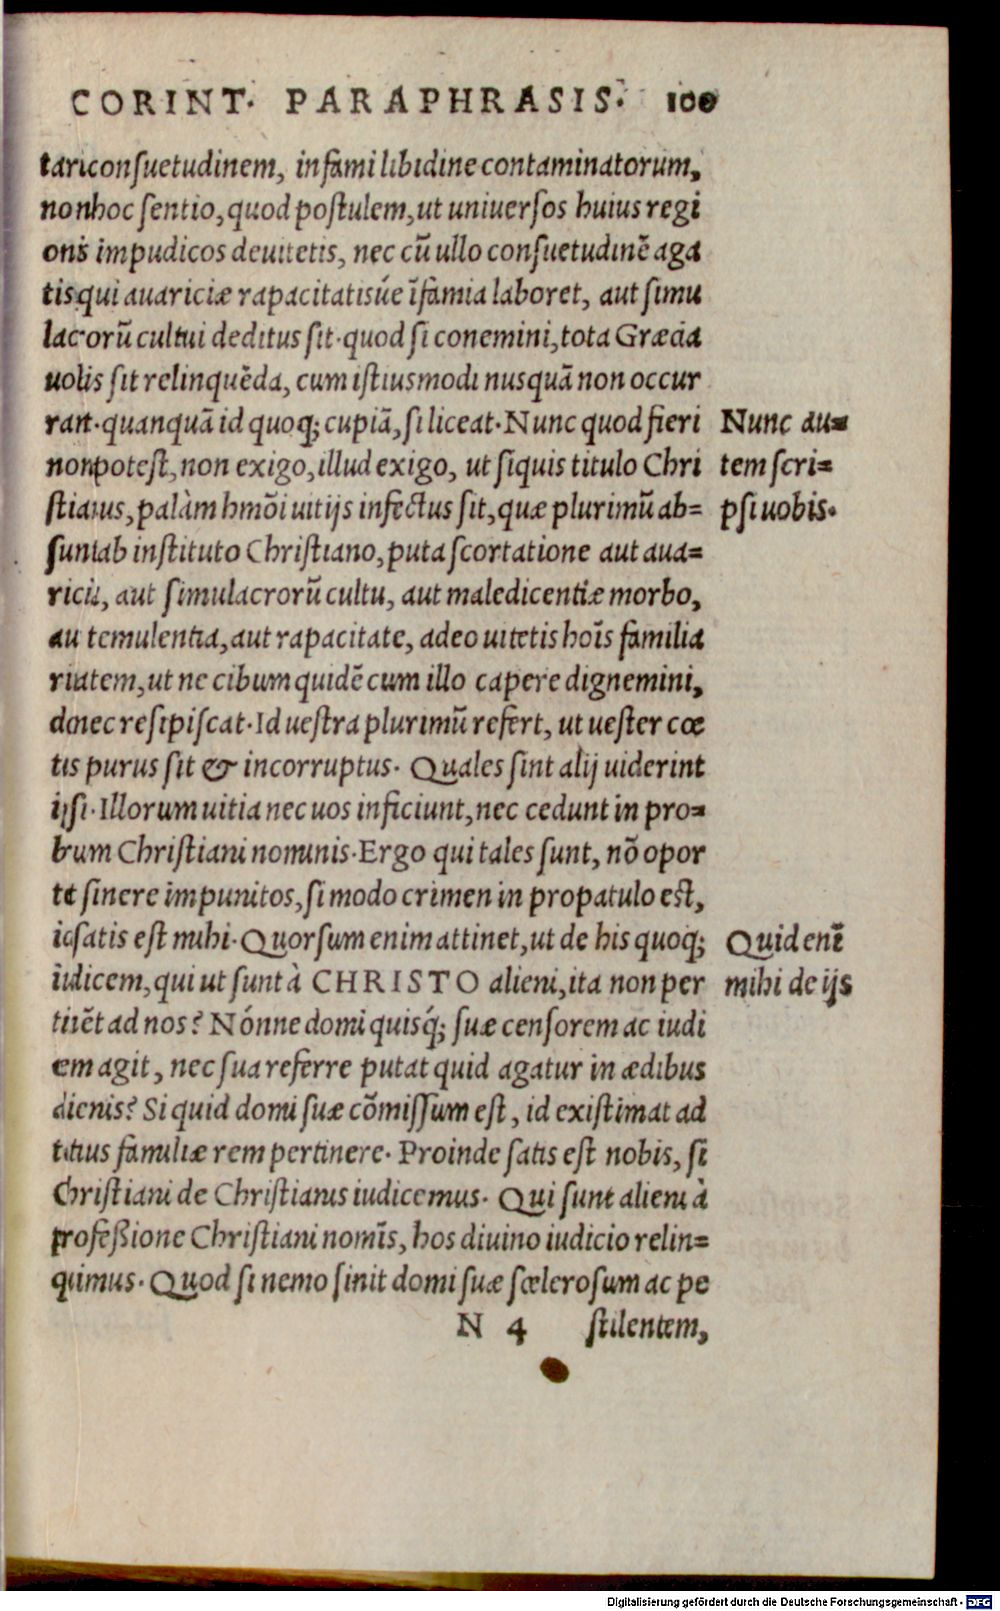 CORINT. PARAPHRASIS. 100
tari consuetudinem, infami libidine contaminatorum,
non hoc sentio, quod postulem, ut uniuersos huius regi
onis impudicos deuitetis, nec cũ ullo consuetudinẽ aga
tis qui auariciæ rapacitatisúe ĩfamia laboret, aut simu
lacrorũ cultui deditus sit. quod si conemini, tota Græcia
uobis sit relinquẽda, cum istiusmodi nusquã non occur
rant. quanquã id quoq; cupiã, si liceat. Nunc quod fieri
non potest, non exigo, illud exigo, ut siquis titulo Chri
stianus, palàm hmõi uitijs infectus sit, quæ plurimũ ab=
sunt ab instituto Christiano, puta scortatione aut aua=
ricia, aut simulacrorũ cultu, aut maledicentiæ morbo,
aut temulentia, aut rapacitate, adeo uitetis hoĩs familia
ritatem, ut ne cibum quidẽ cum illo capere dignemini,
donec resipiscat. Id uestra plurimũ refert, ut uester cœ
tus purus sit & incorruptus. Quales sint alij uiderint
ipsi. Illorum uitia nec uos inficiunt, nec cedunt in pro=
brum Christiani nominis. Ergo qui tales sunt, nõ opor
tet sinere impunitos, si modo crimen in propatulo est,
id satis est mihi. Quorsum enim attinet, ut de his quoq;
iudicem, qui ut sunt à CHRISTO alieni, ita non per
tinẽt ad nos? Nónne domi quisq́; suæ censorem ac iudi
cem agit, nec sua referre putat quid agatur in ædibus
alienis? Si quid domi suæ cõmissum est, id existimat ad
totius familiæ rem pertinere. Proinde satis est nobis, si
Christiani de Christianis iudicemus. Qui sunt alieni à
professione Christiani nomĩs, hos diuino iudicio relin=
quimus. Quod si nemo sinit domi suæ scelerosum ac pe
N 4 stilentem,
Nunc au=
tem scri=
psi uobis.
Quid enĩ
mihi de ijs
Digitalisierung gefördert durch die Deutsche Forschungsgemeinschaft - DFG